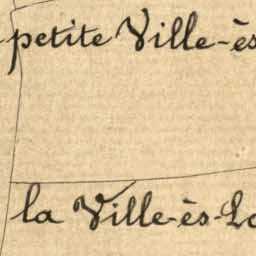 petite Ville-ès
la Ville-ès-Lo